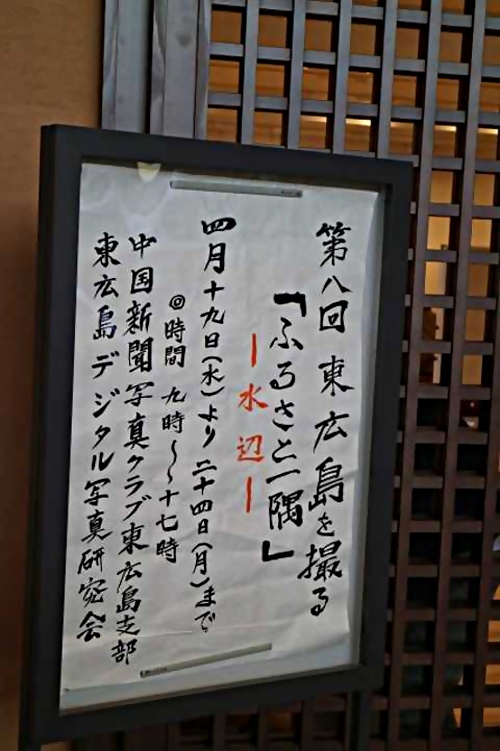 第八回 東広島を撮る
「ふるさと一隅」
ー水辺ー
四月十九日(水)より二十四日(月)まで
◎時間 九時〜十七時
中国新聞写真クラブ東広島支部
東広島デジタル写真研究会